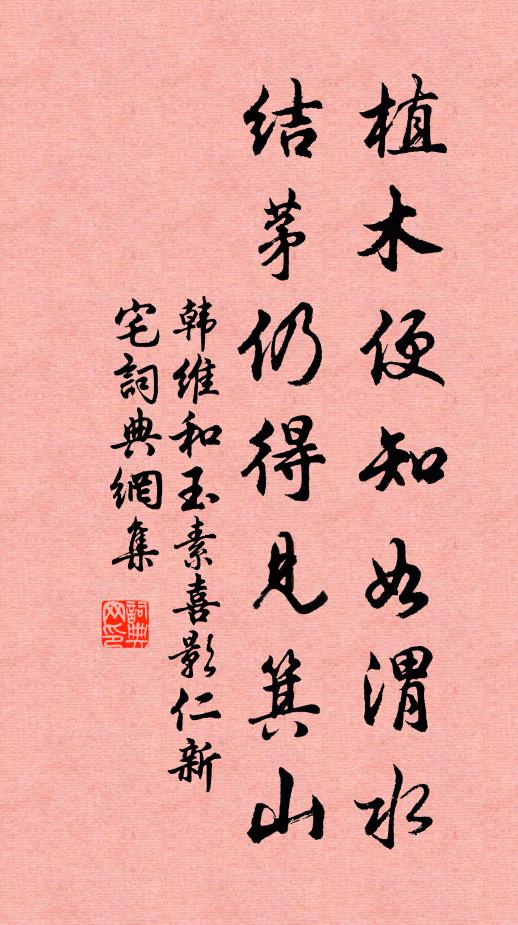 植木便知如渭水
结茅仍得見箕山
韩維和玉素喜影仁新
宅詞典網集
詞典網印